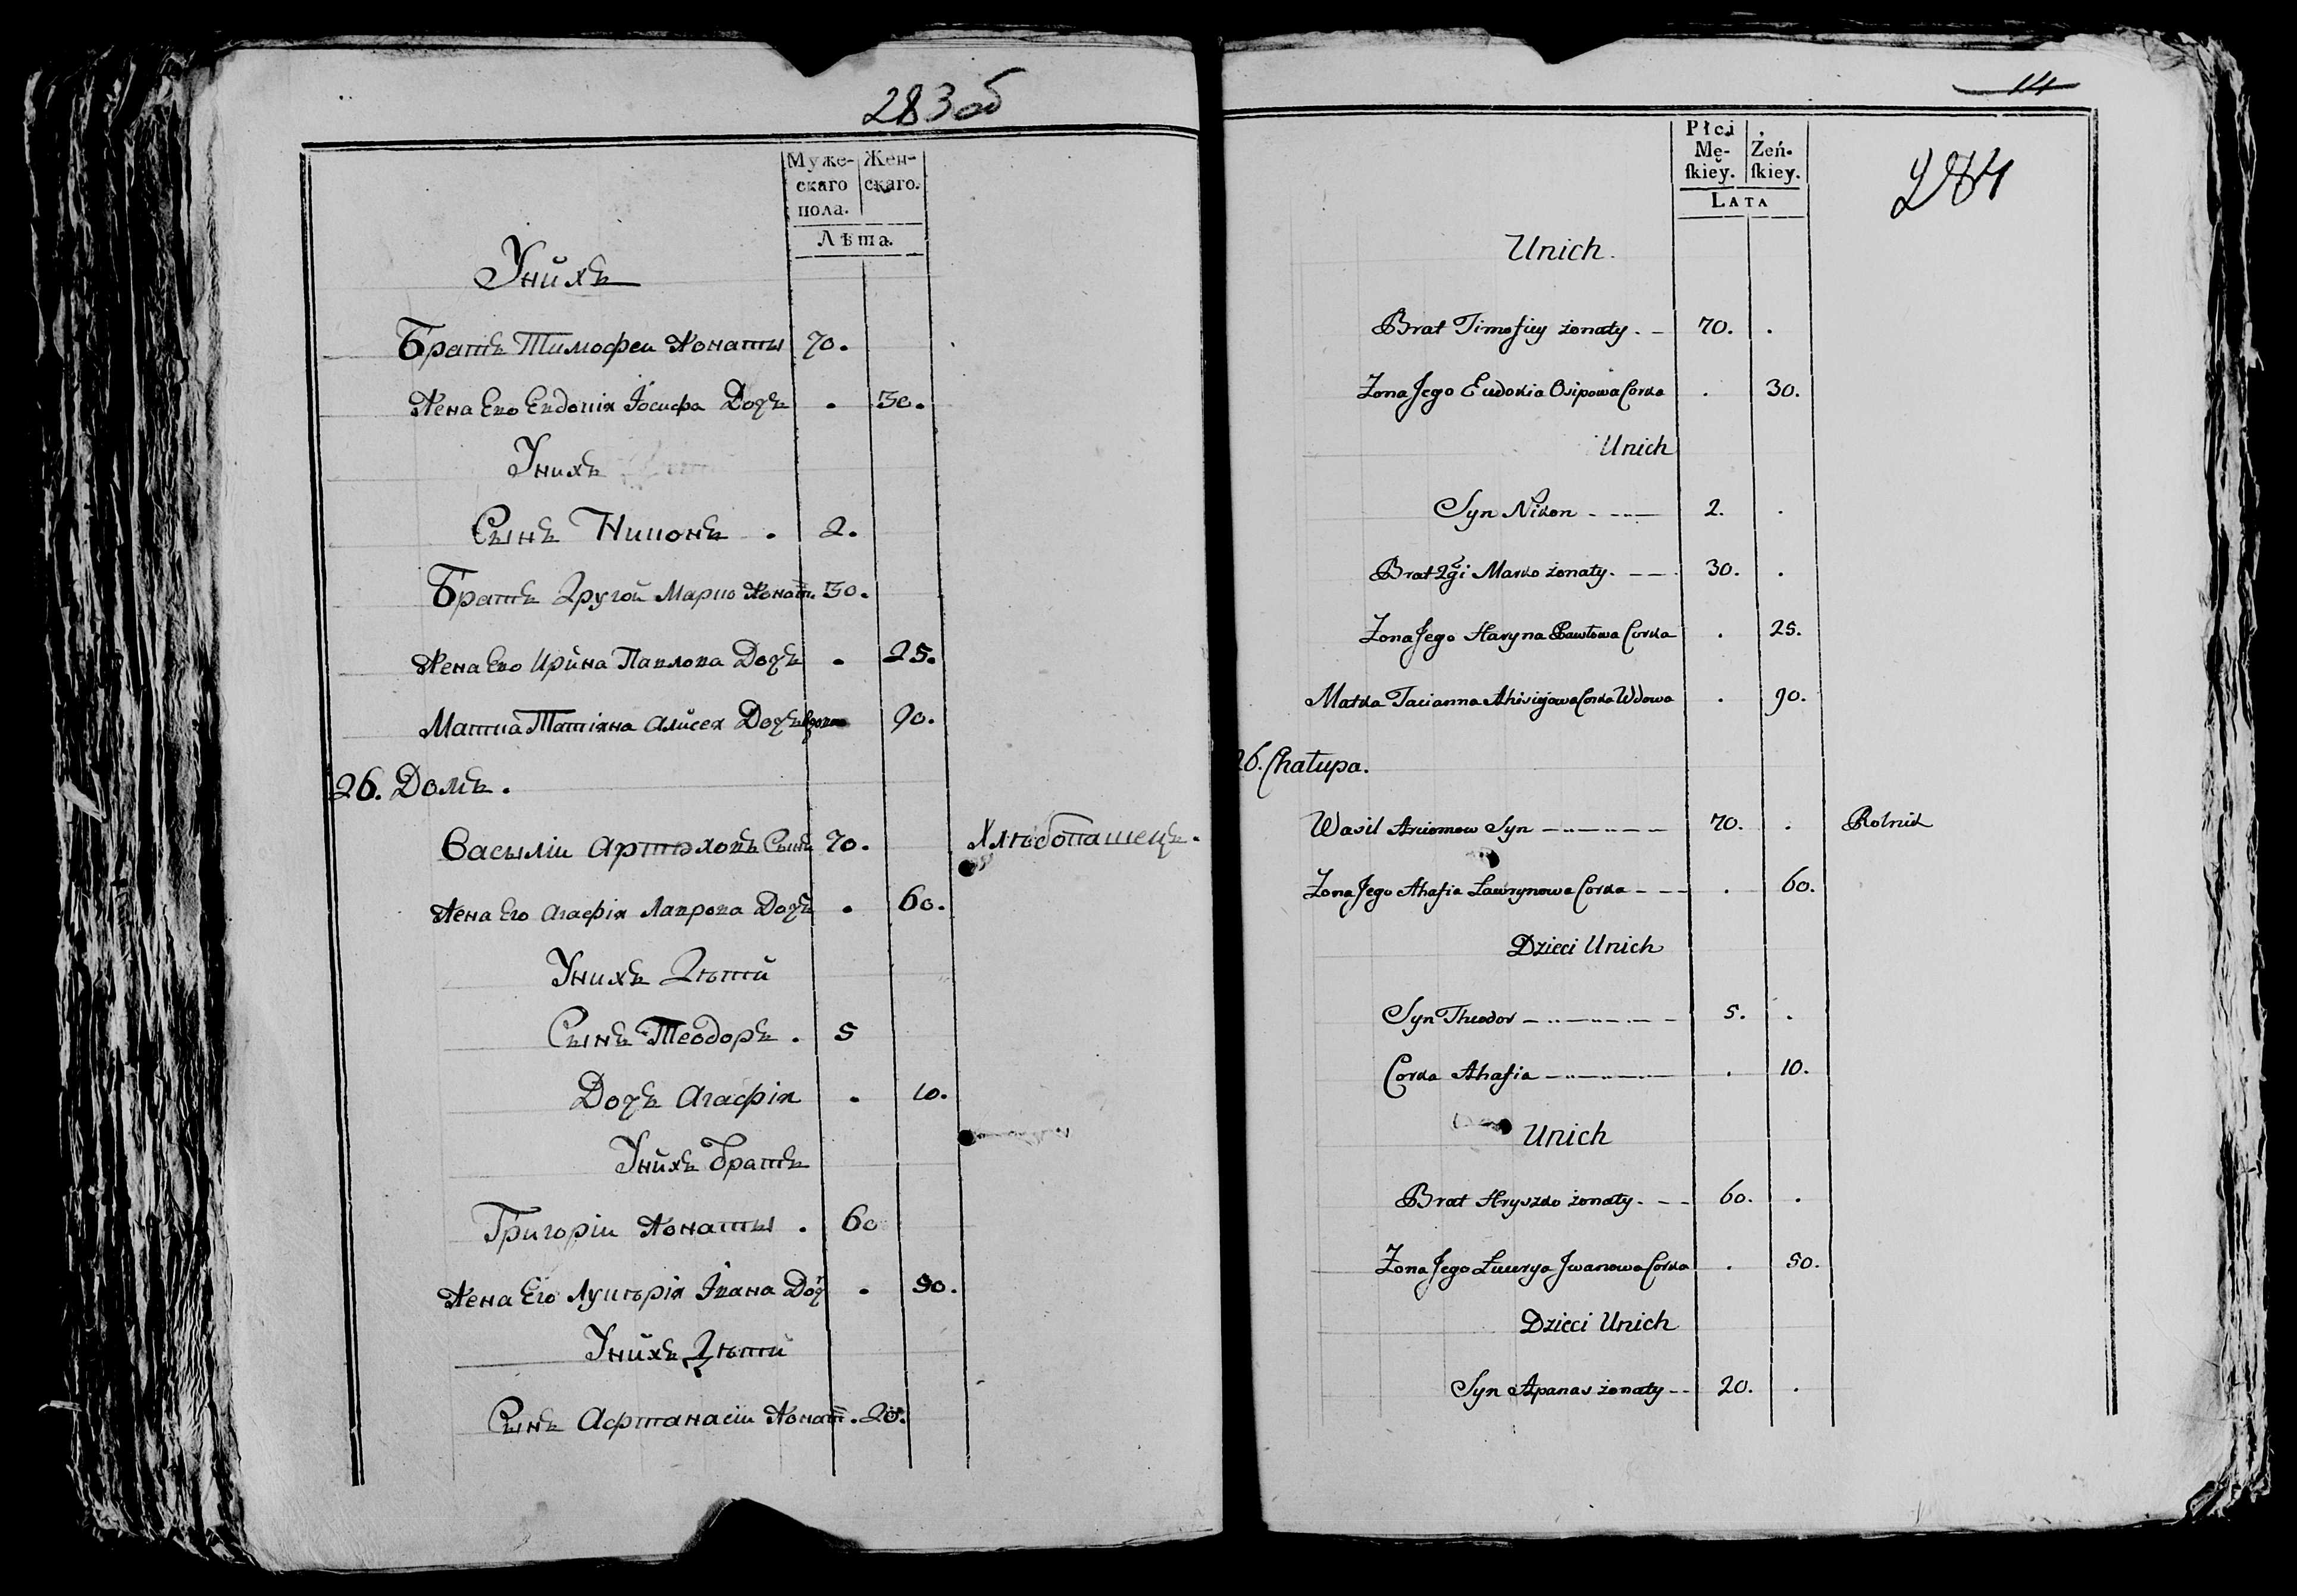 283об
Муже- Жен-
скаго скаго.
пола.
Лѣта.
Унихъ
Братъ Тимофеи Жонаты 70.
Жена Его Евдокія Іосифа Дочь . 30.
Унихъ
Сынъ Никонъ . 2.
Братъ Другой Марко Жонат. 30.
Жена Его Ирина Павлова Дочь . 25.
Матка Татіяна Алисея Дочь Вдова 90.
26. Домъ.
Василіи Артюховъ Сынъ 70. Хлѣбопашецъ.
Жена Его Агафія Лаврова Дочь . 60.
Унихъ Дѣти
Сынъ Теодоръ . 5
Дочь Агафія . 10.
Унихъ Братъ
Григоріи Жонаты . 60
Жена Его Лукѣрія Івана Доч . 50.
Унихъ Дѣти
Сынъ Афтанасіи Жонат. 20.
14
284
Płci
Mę- Żeń-
ſkiey. ſkiey.
Lata
Unich.
Brat Timofiey żonaty. 70. .
Żona Jego Eudokia Osipowa Corka . 30.
Unich
Syn Nikon 2. .
Brat 2gi Marko żonaty. 30. .
Żona Jego Haryna Pawłowa Corka . 25.
Matka Tacianna Ahisiejowa Corka Wdowa . 90.
26. Chałupa.
Wasil Arciomow Syn 70. . Rolnik
Żona Jego Ahafia Ławrynowa Corka . 60.
Dzieci Unich
Syn Theodor 5. .
Corka Ahafia . 10.
Unich
Brat Hryszko żonaty. 60. .
Żona Jego Łukerya Jwanowa Corka . 50.
Dzieci Unich
Syn Apanas żonaty 20. .